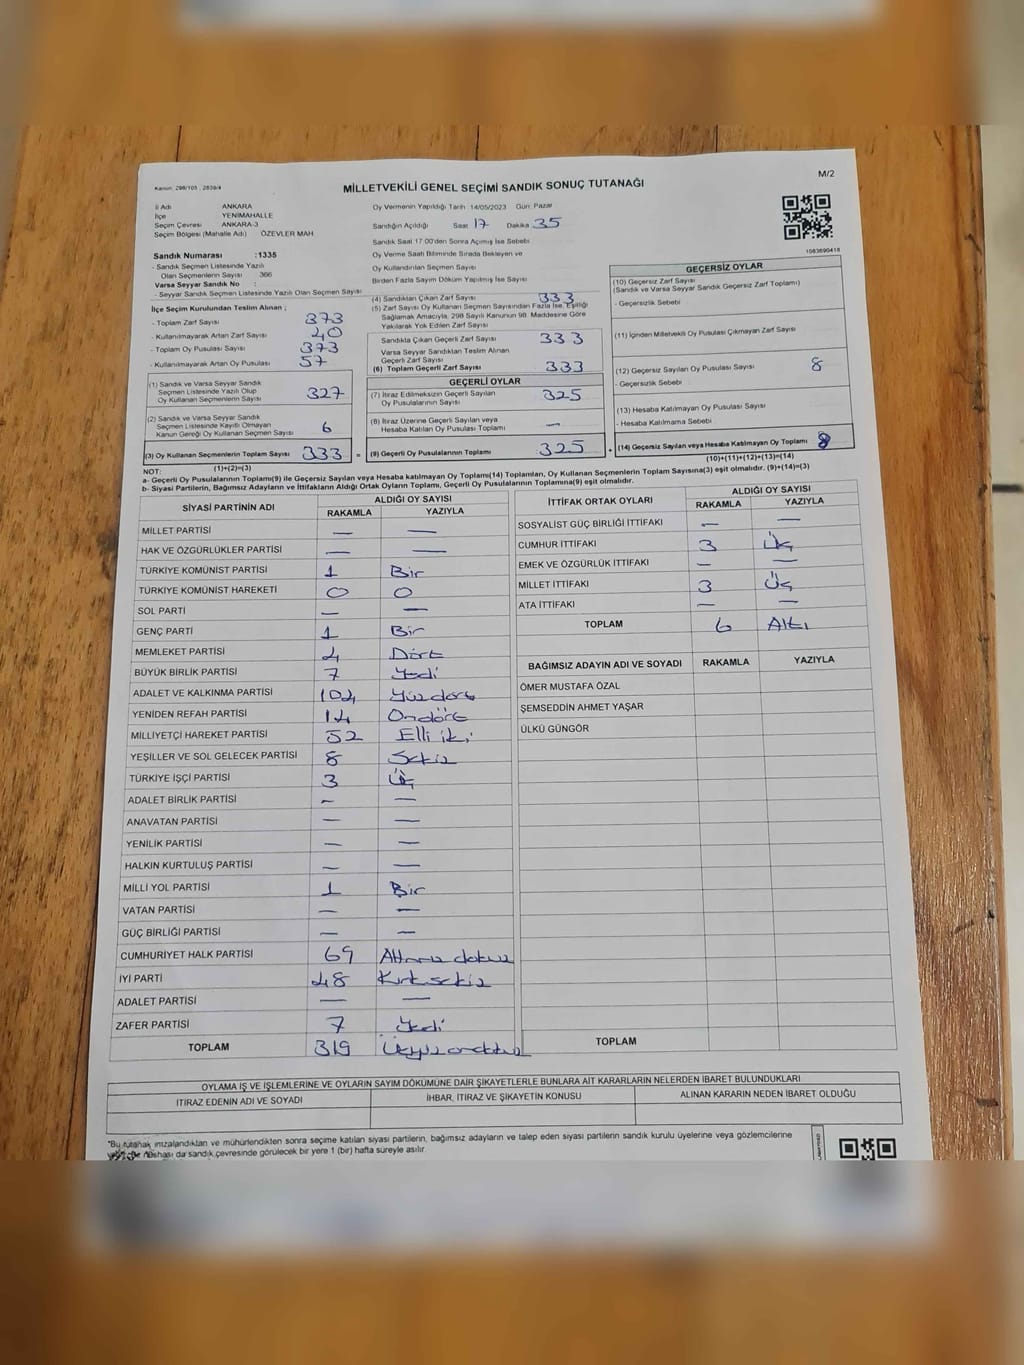 M/2
Kanun: 298/105 , 2839/4
MİLLETVEKİLİ GENEL SEÇİMİ SANDIK SONUÇ TUTANAĞI
İl Adı ANKARA
İlçe YENİMAHALLE
Seçim Çevresi ANKARA-3
Seçim Bölgesi (Mahalle Adı) ÖZEVLER MAH.
Oy Vermenin Yapıldığı Tarih :14/05/2023 Gün: Pazar
Sandığın Açıldığı Saat 17 Dakika 35
Sandık Saat 17:00'den Sonra Açılmış İse Sebebi
Oy Verme Saati Bitiminde Sırada Bekleyen ve
Oy Kullandırılan Seçmen Sayısı
Birden Fazla Sayım Döküm Yapılmış İse Sayısı
1083690418
Sandık Numarası :1335
- Sandık Seçmen Listesinde Yazılı
Olan Seçmenlerin Sayısı 366
Varsa Seyyar Sandık No :
- Seyyar Sandık Seçmen Listesinde Yazılı Olan Seçmen Sayısı
İlçe Seçim Kurulundan Teslim Alınan ;
- Toplam Zarf Sayısı 373
- Kullanılmayarak Artan Zarf Sayısı 40
- Toplam Oy Pusulası Sayısı 373
- Kullanılmayarak Artan Oy Pusulası 57
(1) Sandık ve Varsa Seyyar Sandık
Seçmen Listesinde Yazılı Olup
Oy Kullanan Seçmenlerin Sayısı 327
(2) Sandık ve Varsa Seyyar Sandık
Seçmen Listesinde Kayıtlı Olmayan
Kanun Gereği Oy Kullanan Seçmen Sayısı 6
(3) Oy Kullanan Seçmenlerin Toplam Sayısı 333 =
(1)+(2)=(3)
(4) Sandıktan Çıkan Zarf Sayısı 333
(5) Zarf Sayısı Oy Kullanan Seçmen Sayısından Fazla İse, Eşitliği
Sağlamak Amacıyla, 298 Sayılı Kanunun 98. Maddesine Göre
Yakılarak Yok Edilen Zarf Sayısı
Sandıkta Çıkan Geçerli Zarf Sayısı 333
Varsa Seyyar Sandıktan Teslim Alınan
Geçerli Zarf Sayısı
(6) Toplam Geçerli Zarf Sayısı 333
GEÇERLİ OYLAR
(7) İtiraz Edilmeksizin Geçerli Sayılan
Oy Pusulalarının Sayısı 325
(8) İtiraz Üzerine Geçerli Sayılan veya
Hesaba Katılan Oy Pusulası Toplamı —
(9) Geçerli Oy Pusulalarının Toplamı : 325 +
GEÇERSİZ OYLAR
(10) Geçersiz Zarf Sayısı
(Sandık ve Varsa Seyyar Sandık Geçersiz Zarf Toplamı)
- Geçersizlik Sebebi
(11) İçinden Milletvekili Oy Pusulası Çıkmayan Zarf Sayısı
(12) Geçersiz Sayılan Oy Pusulası Sayısı 8
- Geçersizlik Sebebi
(13) Hesaba Katılmayan Oy Pusulası Sayısı
- Hesaba Katılmama Sebebi
(14) Geçersiz Sayılan veya Hesaba Katılmayan Oy Toplamı 8
(10)+(11)+(12)+(13)=(14)
NOT:
a- Geçerli Oy Pusulalarının Toplamı(9) ile Geçersiz Sayılan veya Hesaba katılmayan Oy Toplamı(14) Toplamları, Oy Kullanan Seçmenlerin Toplam Sayısına(3) eşit olmalıdır. (9)+(14)=(3)
b- Siyasi Partilerin, Bağımsız Adayların ve İttifakların Aldığı Ortak Oyların Toplamı, Geçerli Oy Pusulalarının Toplamına(9) eşit olmalıdır.
SİYASİ PARTİNİN ADI ALDIĞI OY SAYISI
RAKAMLA YAZIYLA
MİLLET PARTİSİ — —
HAK VE ÖZGÜRLÜKLER PARTİSİ — —
TÜRKİYE KOMÜNİST PARTİSİ 1 Bir
TÜRKİYE KOMÜNİST HAREKETİ 0 0
SOL PARTİ — —
GENÇ PARTİ 1 Bir
MEMLEKET PARTİSİ 4 Dört
BÜYÜK BİRLİK PARTİSİ 7 Yedi
ADALET VE KALKINMA PARTİSİ 104 Yüzdört
YENİDEN REFAH PARTİSİ 14 Ondört
MİLLİYETÇİ HAREKET PARTİSİ 52 Elli iki
YEŞİLLER VE SOL GELECEK PARTİSİ 8 Sekiz
TÜRKİYE İŞÇİ PARTİSİ 3 Üç
ADALET BİRLİK PARTİSİ — —
ANAVATAN PARTİSİ — —
YENİLİK PARTİSİ — —
HALKIN KURTULUŞ PARTİSİ — —
MİLLİ YOL PARTİSİ 1 Bir
VATAN PARTİSİ — —
GÜÇ BİRLİĞİ PARTİSİ — —
CUMHURİYET HALK PARTİSİ 69 Altmış dokuz
İYİ PARTİ 48 Kırksekiz
ADALET PARTİSİ — —
ZAFER PARTİSİ 7 Yedi
TOPLAM 319 Üçyüzondokuz
İTTİFAK ORTAK OYLARI ALDIĞI OY SAYISI
RAKAMLA YAZIYLA
SOSYALİST GÜÇ BİRLİĞİ İTTİFAKI — —
CUMHUR İTTİFAKI 3 Üç
EMEK VE ÖZGÜRLÜK İTTİFAKI — —
MİLLET İTTİFAKI 3 Üç
ATA İTTİFAKI — —
TOPLAM 6 Altı
BAĞIMSIZ ADAYIN ADI VE SOYADI RAKAMLA YAZIYLA
ÖMER MUSTAFA ÖZAL
ŞEMSEDDİN AHMET YAŞAR
ÜLKÜ GÜNGÖR
TOPLAM
OYLAMA İŞ VE İŞLEMLERİNE VE OYLARIN SAYIM DÖKÜMÜNE DAİR ŞİKAYETLERLE BUNLARA AİT KARARLARIN NELERDEN İBARET BULUNDUKLARI
İTİRAZ EDENİN ADI VE SOYADI İHBAR, İTİRAZ VE ŞİKAYETİN KONUSU ALINAN KARARIN NEDEN İBARET OLDUĞU
"Bu tutanak imzalandıktan ve mühürlendikten sonra seçime katılan siyasi partilerin, bağımsız adayların ve talep eden siyasi partilerin sandık kurulu üyelerine veya gözlemcilerine
da sandık çevresinde görülecek bir yere 1 (bir) hafta süreyle asılır.